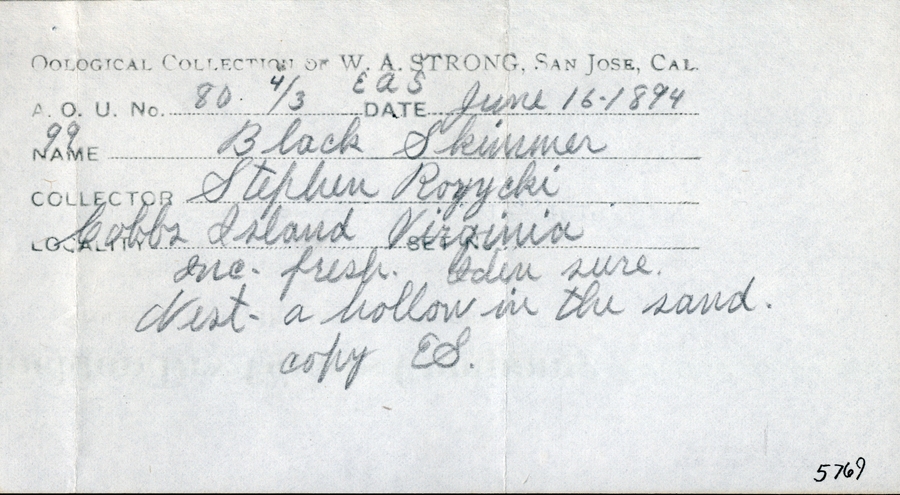 OOLOGICAL COLLECTION OF W. A. STRONG, SAN JOSE, CAL.
A. O. U. No. 80. 4/3 EAS DATE June 16-1894
99
NAME Black Skimmer
COLLECTOR Stephen Rozycki
LOCALITY Cobbs Island Virginia SET
Inc. fresh. Iden sure.
Nest- a hollow in the sand.
copy ES.
5769